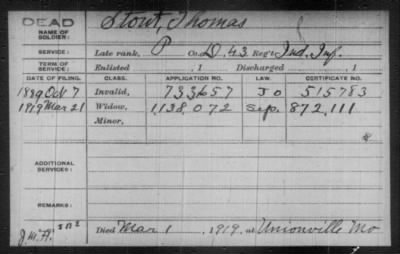 DEAD
NAME OF SOLDIER: Stout, Thomas
SERVICE: Late rank, P Co. D, 43 Reg't Ind. Inf.
TERM OF SERVICE: Enlisted , 1 Discharged , 1
DATE OF FILING. CLASS. APPLICATION NO. LAW. CERTIFICATE NO.
1889 Oct 7 Invalid, 733657 J O 515783
1919 Mar 21 Widow, 1,138,072 Sep. 872,111
Minor,
ADDITIONAL SERVICES:
REMARKS:
Died Mar 1 1919, at Unionville Mo